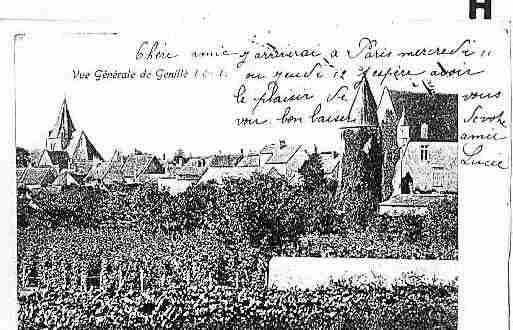 H
Chère amie j'arriverai à Paris mercredi 11
Vue Générale de Genillé
ou jeudi 12 j'espère avoir
le plaisir de vous
voir bon baiser
de votre
amie
Lucie